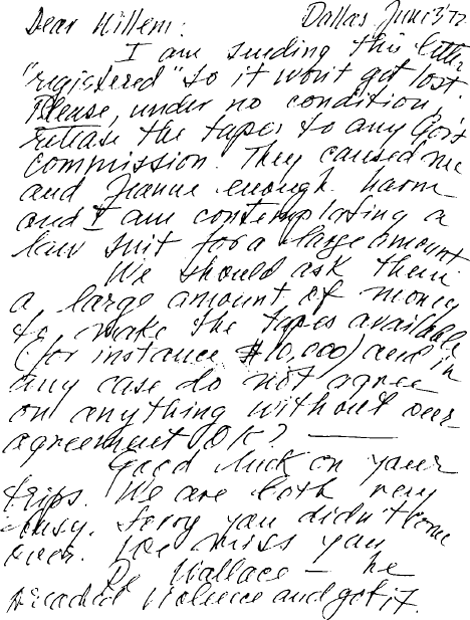 Dear Willem: Dallas, June 3'72
I am sending this letter
"registered" so it won't get lost.
Please, under no condition,
release the tapes to any Gov't
commission. They caused me
and Jeanne enough harm
and I am contemplating a
law suit for a large amount
We should ask them
a large amount of money
to make the tapes available
(for instance $10,000) and in
any case do not agree
on anything without our
agreement OK? ———
Good luck on your
trips. We are both very
busy. Sorry you didn't come
over. We miss you
Wallace — he
preached violence and got it.